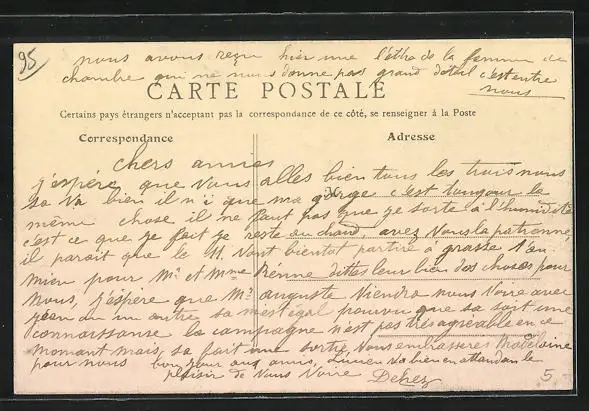 95
nous avons reçu hier une lettre de la femme de
chambre qui ne nous donne pas grand détail c'est entre
nous
CARTE POSTALE
Certains pays étrangers n'acceptant pas la correspondance de ce côté, se renseigner à la Poste
Correspondance
Adresse
chers amies
j'espère que vous alles bien tous les trois nous
sa va bien il n i que ma gorge c'est toujour la
même chose il ne faut pas que je sorte à l'humidité
c'est ce que je fait je reste au chaud, avez vous la patronne,
il parait que le vont bientot partire a grasse
mieu pour Mr et Mme dittes leur bien dos choses pour
nous, j'éspère que Mr auguste viendra nous voire avec
jean ou un autre sa mest égal pourvu que sa soit une
connaissanse la campagne n'est pas très agréable en ce
momant mais sa fait une sortie vous embrasseres Madelaine
pour nous bonjour aux amis, Lucien va bien en attandan le
plaisir de vous voire
5